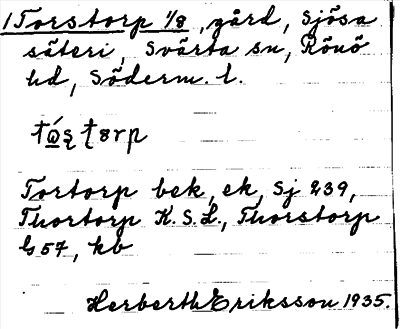 1 Torstorp 1/8, gård, Sjösa
säteri, Svärta sn, Rönö
hd, Söderm. l.
Tortorp bek, ek, Sj 239,
Thortorp K.S.L., Thorstorp
G57, kb
Herberth Eriksson 1935.